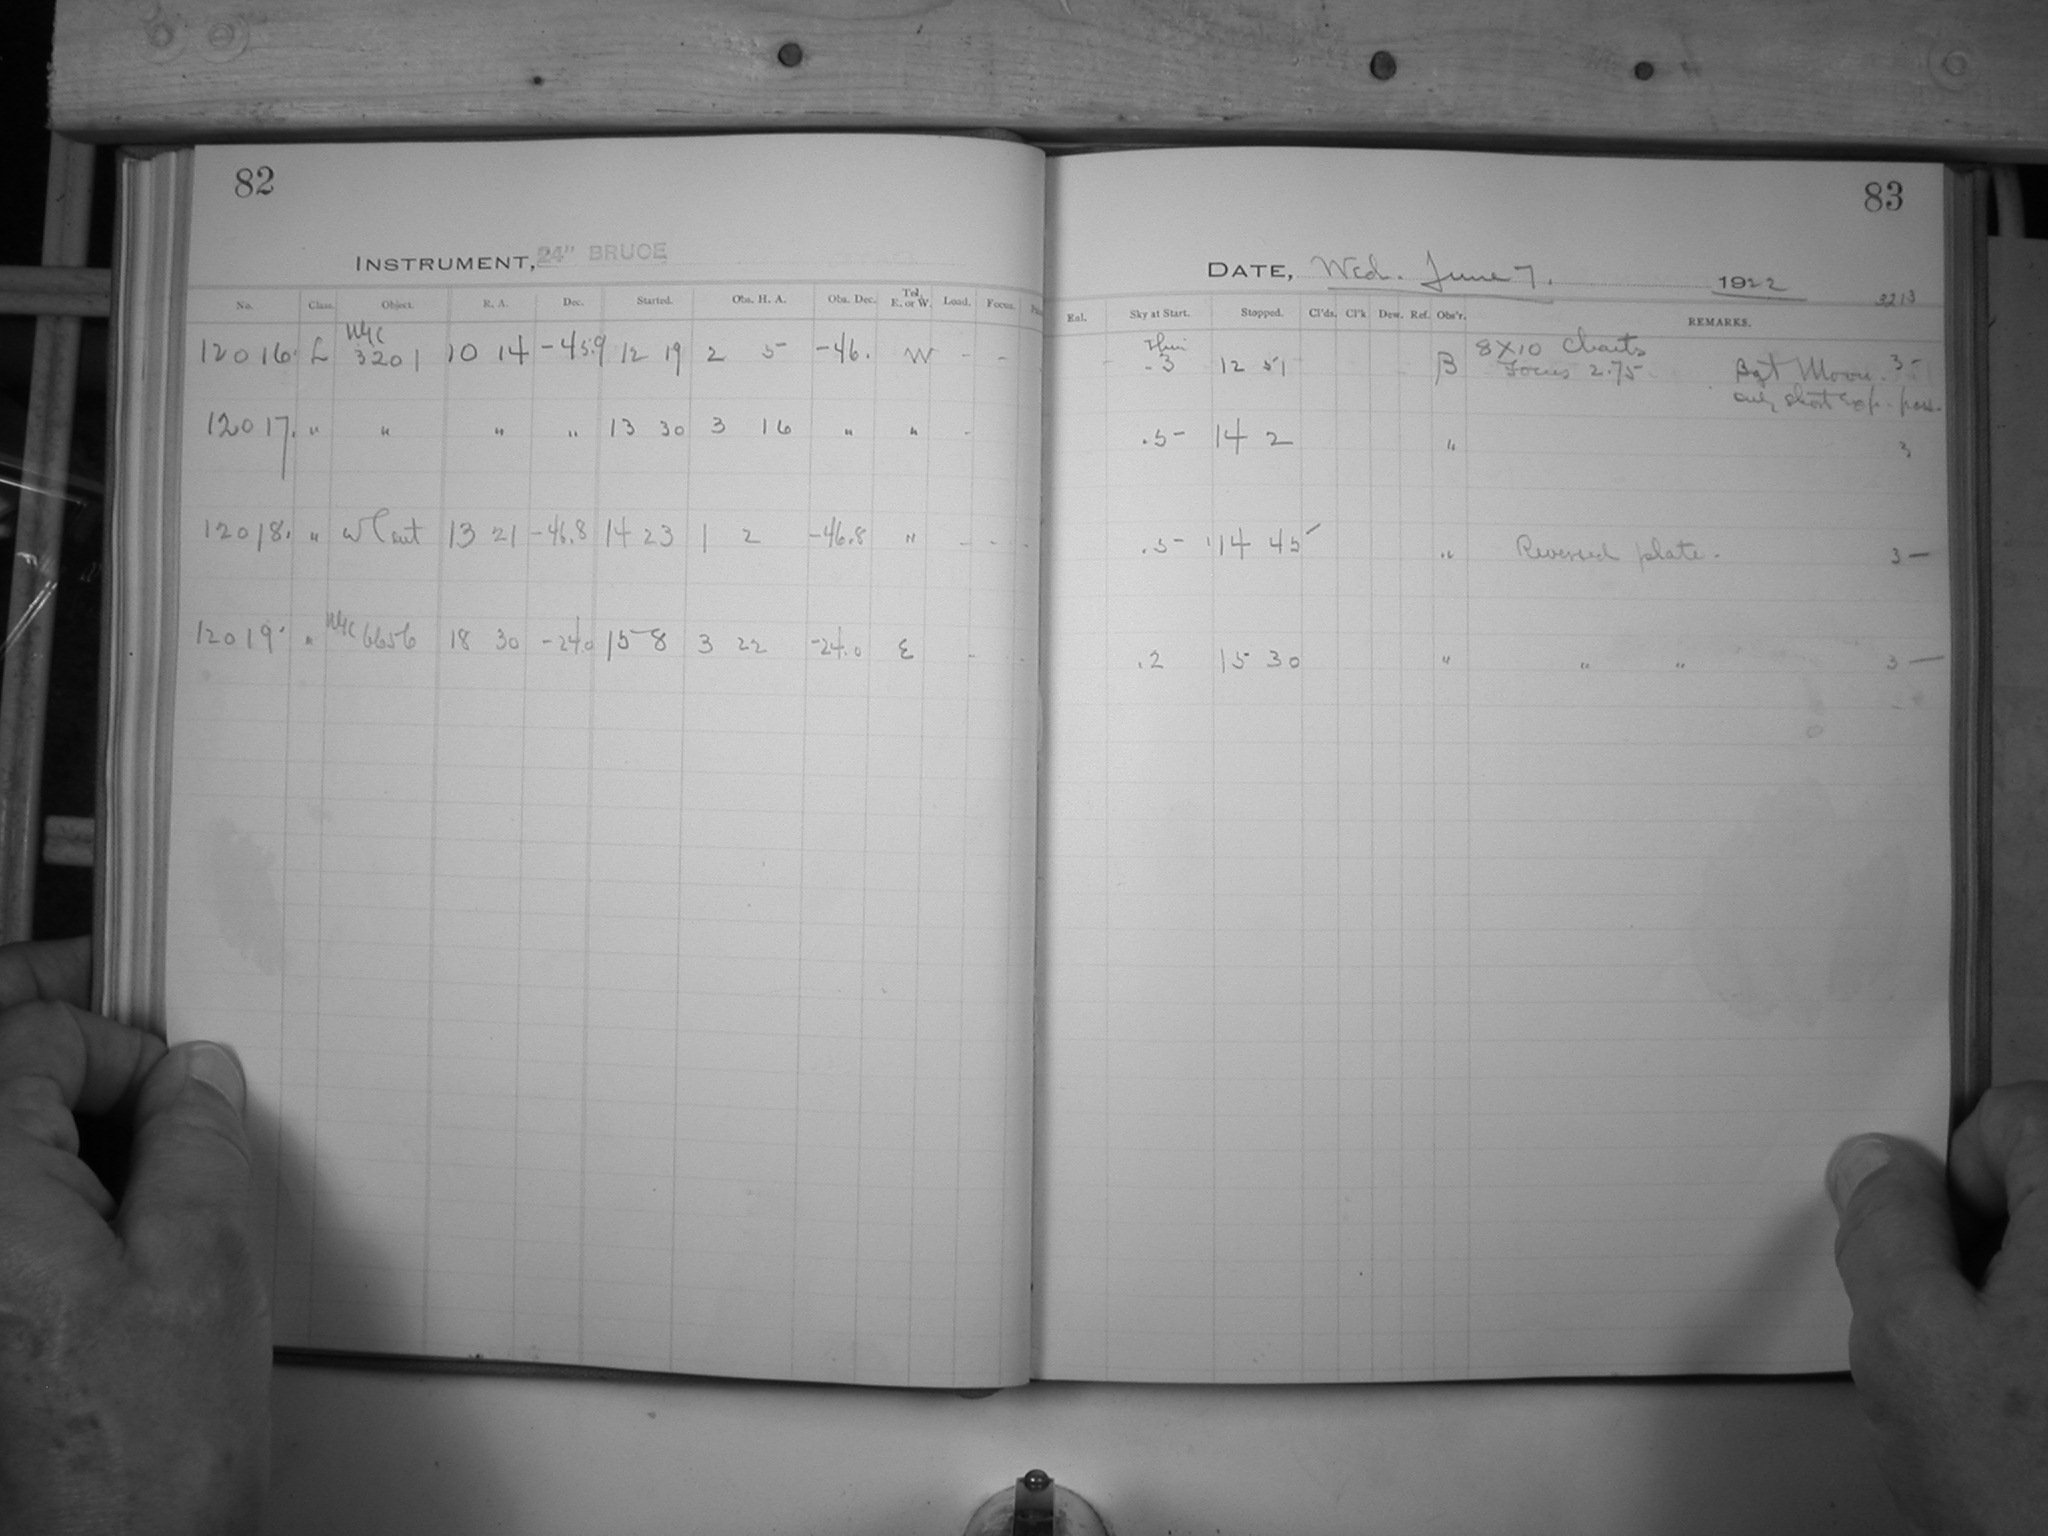 82
INSTRUMENT, 24" BRUCE
No. Class. Object. R. A. Dec. Started. Obs. H. A. Obs. Dec. Tel. E. or W. Load. Focus.
12016 L NGC 3201 10 14 -45.9 12 19 2 5 -46. W - -
12017. " " " " 13 30 3 16 " " -
12018. " ω Cent 13 21 -46.8 14 23 1 2 -46.8 " - - -
12019 " NGC 6656 18 30 -24.0 15 8 3 22 -24.0 E - -
83
DATE, Wed. June 7. 1922
3213
Rul. Sky at Start. Stopped. Cl'ds. Cl'k Dew. Ref. Obs'r. REMARKS.
Thin .3 12 51 B 8X10 Charts Focus 2.75 Bgt Moon. 3-
only short exp. poss.
.5- 14 2 " 3
.5- 14 45 " Reversed plate. 3 -
.2 15 30 " " " 3 -